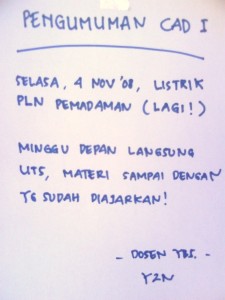 PENGUMUMAN CAD I
SELASA, 4 NOV '08, LISTRIK
PLN PEMADAMAN (LAGI!)
MINGGU DEPAN LANGSUNG
UTS, MATERI SAMPAI DENGAN
YG SUDAH DIAJARKAN!
- DOSEN YBS. -
YZN